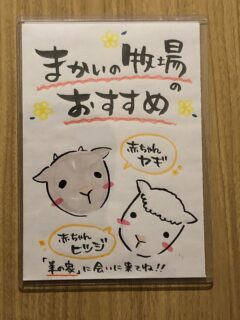 まかいの牧場の
おすすめ
赤ちゃん
ヤギ
赤ちゃん
ヒツジ
「羊の家」に会いに来てね!!